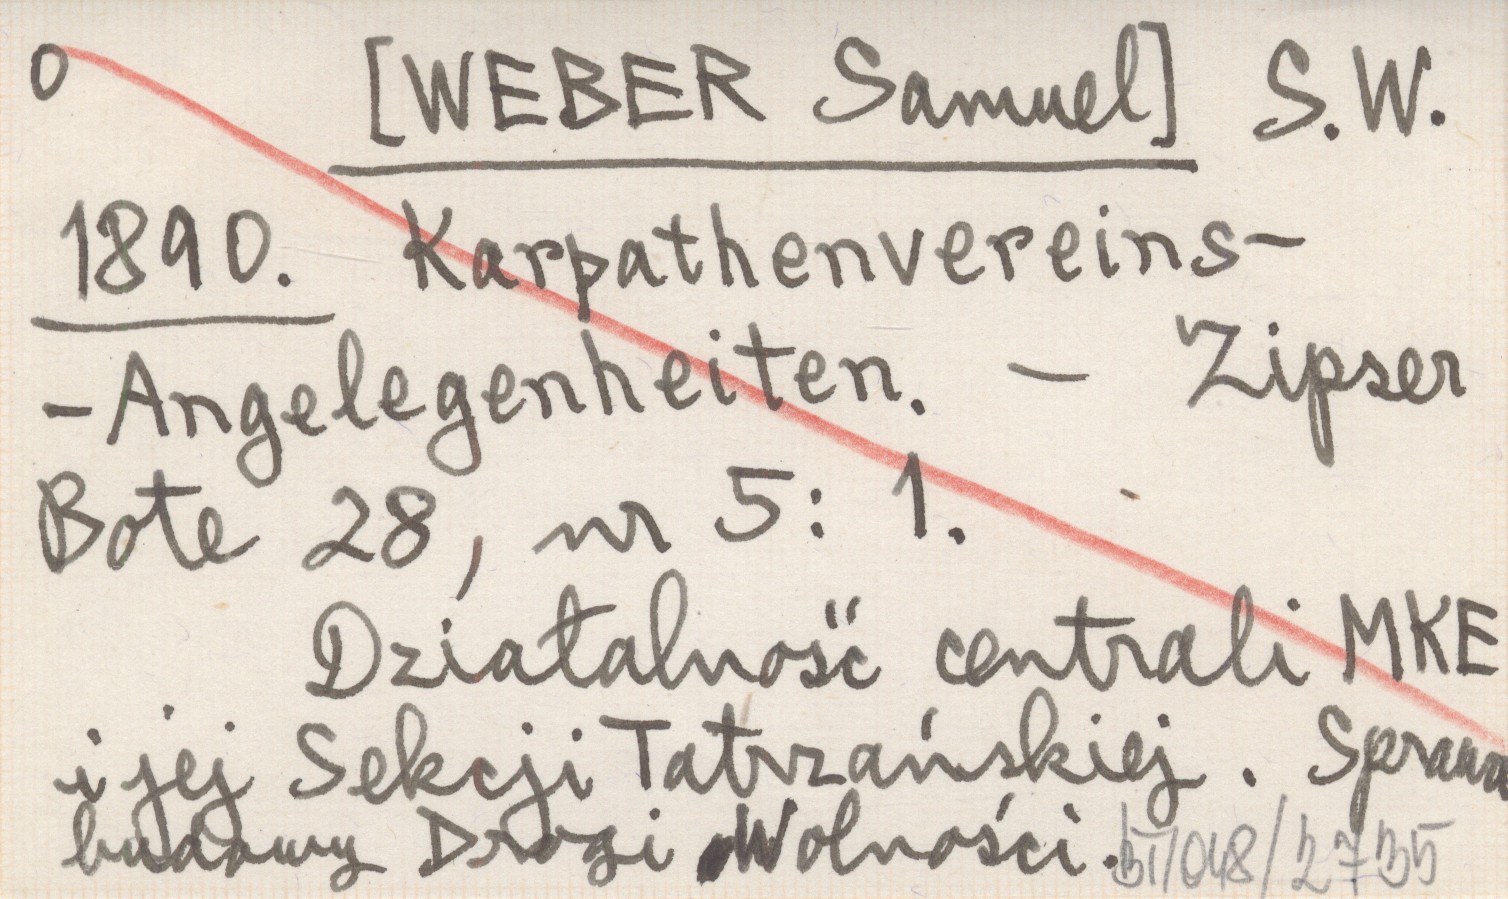 0 [WEBER Samuel] S.W.
1890. Karpathenvereins-
-Angelegenheiten. — Zipser
Bote 28, nr 5: 1.
Działalność centrali MKE
i jej Sekcji Tatrzańskiej. Sprawa
budowy Drogi Wolności.